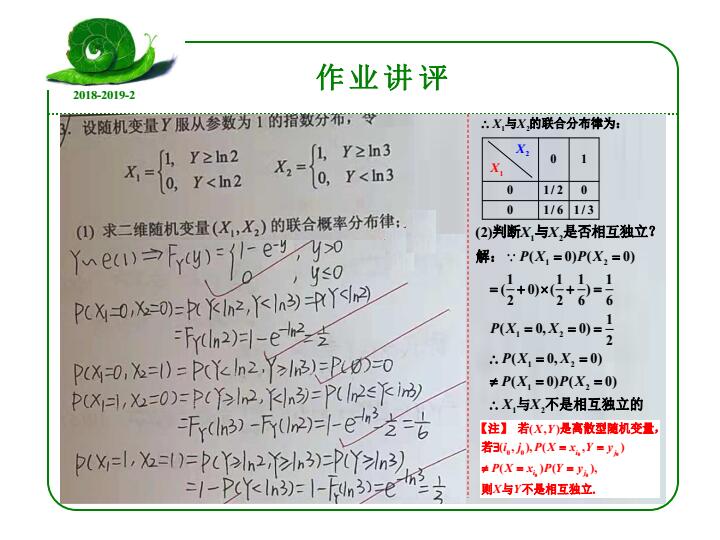 作业讲评
2018-2019-2
3. 设随机变量Y服从参数为1的指数分布，令
X₁ = {1, Y≥ln2; 0, Y<ln2  X₂ = {1, Y≥ln3; 0, Y<ln3
(1) 求二维随机变量(X₁,X₂)的联合概率分布律;
Y~e(1) ⇒ F_Y(y) = {1-e^{-y}, y>0; 0, y≤0
P(X₁=0,X₂=0)=P(Y<ln2,Y<ln3)=P(Y<ln2)
=F_Y(ln2)=1-e^{-ln2}=1/2
P(X₁=0,X₂=1)=P(Y<ln2,Y≥ln3)=P(∅)=0
P(X₁=1,X₂=0)=P(Y≥ln2,Y<ln3)=P(ln2≤Y<ln3)
=F_Y(ln3)-F_Y(ln2)=1-e^{-ln3}-1/2=1/6
P(X₁=1,X₂=1)=P(Y≥ln2,Y≥ln3)=P(Y≥ln3)
=1-P(Y<ln3)=1-F_Y(ln3)=e^{-ln3}=1/3
∴X₁与X₂的联合分布律为:
X₂ 0 1
X₁
0 1/2 0
0 1/6 1/3
(2)判断X₁与X₂是否相互独立?
解: ∵ P(X₁=0)P(X₂=0)
=(1/2+0)×(1/2+1/6)=1/6
P(X₁=0,X₂=0)=1/2
∴P(X₁=0,X₂=0)
≠P(X₁=0)P(X₂=0)
∴X₁与X₂不是相互独立的
【注】 若(X,Y)是离散型随机变量,
若∃(i₀,j₀),P(X=x_{i₀},Y=y_{j₀})
≠P(X=x_{i₀})P(Y=y_{j₀}),
则X与Y不是相互独立.